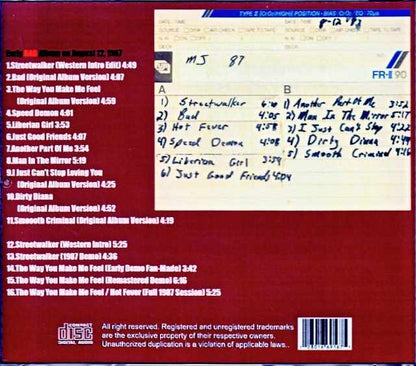 Early BAD Album on August 12, 1987
1.Streetwalker (Western Intro Edit) 4:49
2.Bad (Original Album Version) 4:07
3.The Way You Make Me Feel
(Original Album Version) 4:59
4.Speed Demon 4:01
5.Liberian Girl 3:53
6.Just Good Friends 4:07
7.Another Part Of Me 3:54
8.Man In The Mirror 5:19
9.I Just Can't Stop Loving You
(Original Album Version) 4:25
10.Dirty Diana
(Original Album Version) 4:52
11.Smooth Criminal (Original Album Version) 4:19
12.Streetwalker (Western Intro) 5:25
13.Streetwalker (1987 Demo) 4:36
14.The Way You Make Me Feel (Early Demo Fan-Made) 3:42
15.The Way You Make Me Feel (Remastered Demo) 6:16
16.The Way You Make Me Feel / Hot Fever (Full 1987 Session) 5:25
TYPE II (CrO2) HIGH POSITION · BIAS
EQ: 70μs
8-12-87
MJ 87
FR-II 90
A
1) Streetwalker
2) Bad 4:05
3) Hot Fever 4:58
4) Speed Demon 4:08
5) Liberian Girl 3:54
6) Just Good Friends 4:04
B
1) Another Part Of Me 3:52
2) Man In The Mirror 5:17
3) I Just Can't Stop 4:22
4) Dirty Diana 4:49
5) Smooth Criminal 4:16
COMPACT
disc
DIGITAL AUDIO
All right reserved. Registered and unregistered trademarks
are the exclusive property of their respective owners.
Unauthorized duplication is a violation of applicable laws..